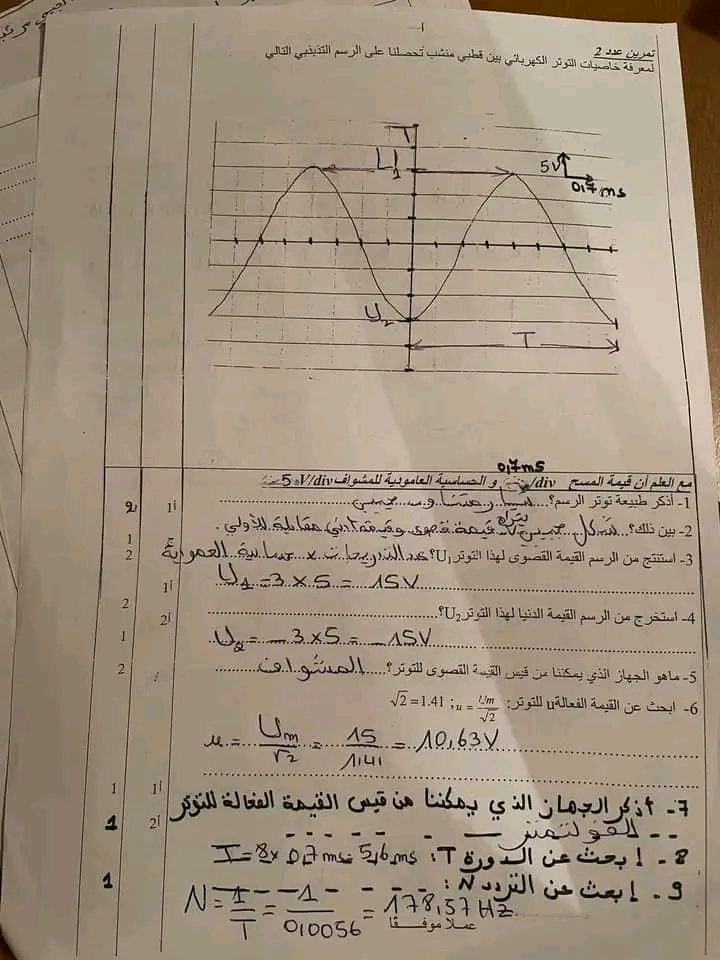 تمرين عدد 2
لمعرفة خاصيات التوتر الكهربائي بين قطبي منشب تحصلنا على الرسم التذبذبي التالي
U1
5V
0,7ms
U2
T
0,7ms
مع العلم أن قيمة المسح /div و الحساسية العامودية للمشواف 5 V/div
1- أذكر طبيعة توتر الرسم؟
2- بين ذلك؟ شكل جيبي يترا قيمة قصوى وقيمة أدنى مقابلة للأولى.
3- استنتج من الرسم القيمة القصوى لهذا التوتر U1؟ عدد التدريجات × حساسية العمودية
U1 = 3 × 5 = 15V
4- استخرج من الرسم القيمة الدنيا لهذا التوتر U2؟
U2 = - 3 × 5 = - 15V
5- ماهو الجهاز الذي يمكننا من قيس القيمة القصوى للتوتر؟ المشواف
6- ابحث عن القيمة الفعالة u للتوتر: u = Um/√2 ; √2 = 1.41
u = Um/√2 = 15/1,41 = 10,63V
7- أذكر الجهاز الذي يمكننا من قيس القيمة الفعالة للتوتر
الفولتمتر
8- ابحث عن الدورة T: T = 8 × 0,7ms = 5,6ms
9- ابحث عن التردد N:
N = 1/T = 1/0,0056 = 178,57 HZ
عملا موفقا